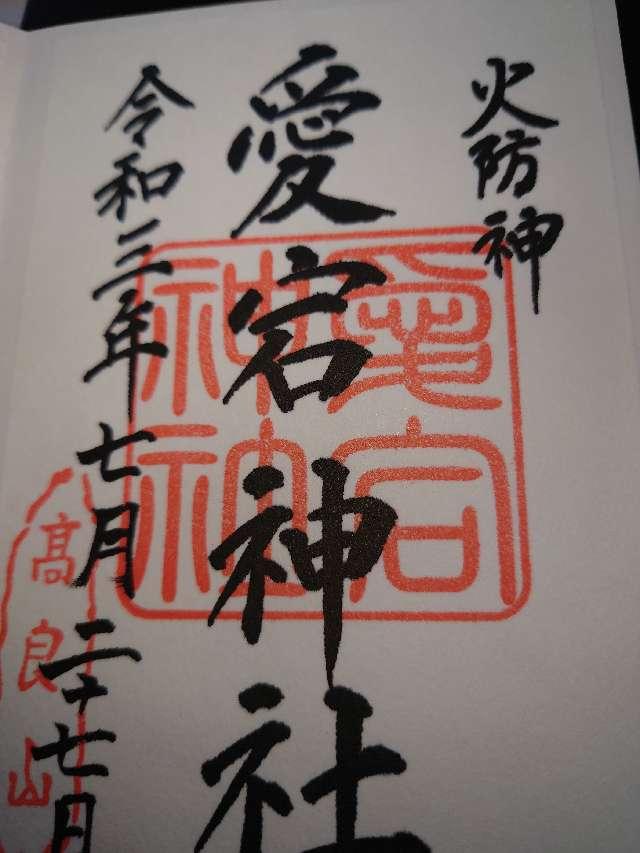 火防神
愛宕神社
令和三年七月二十七日
愛宕
神社
髙良山